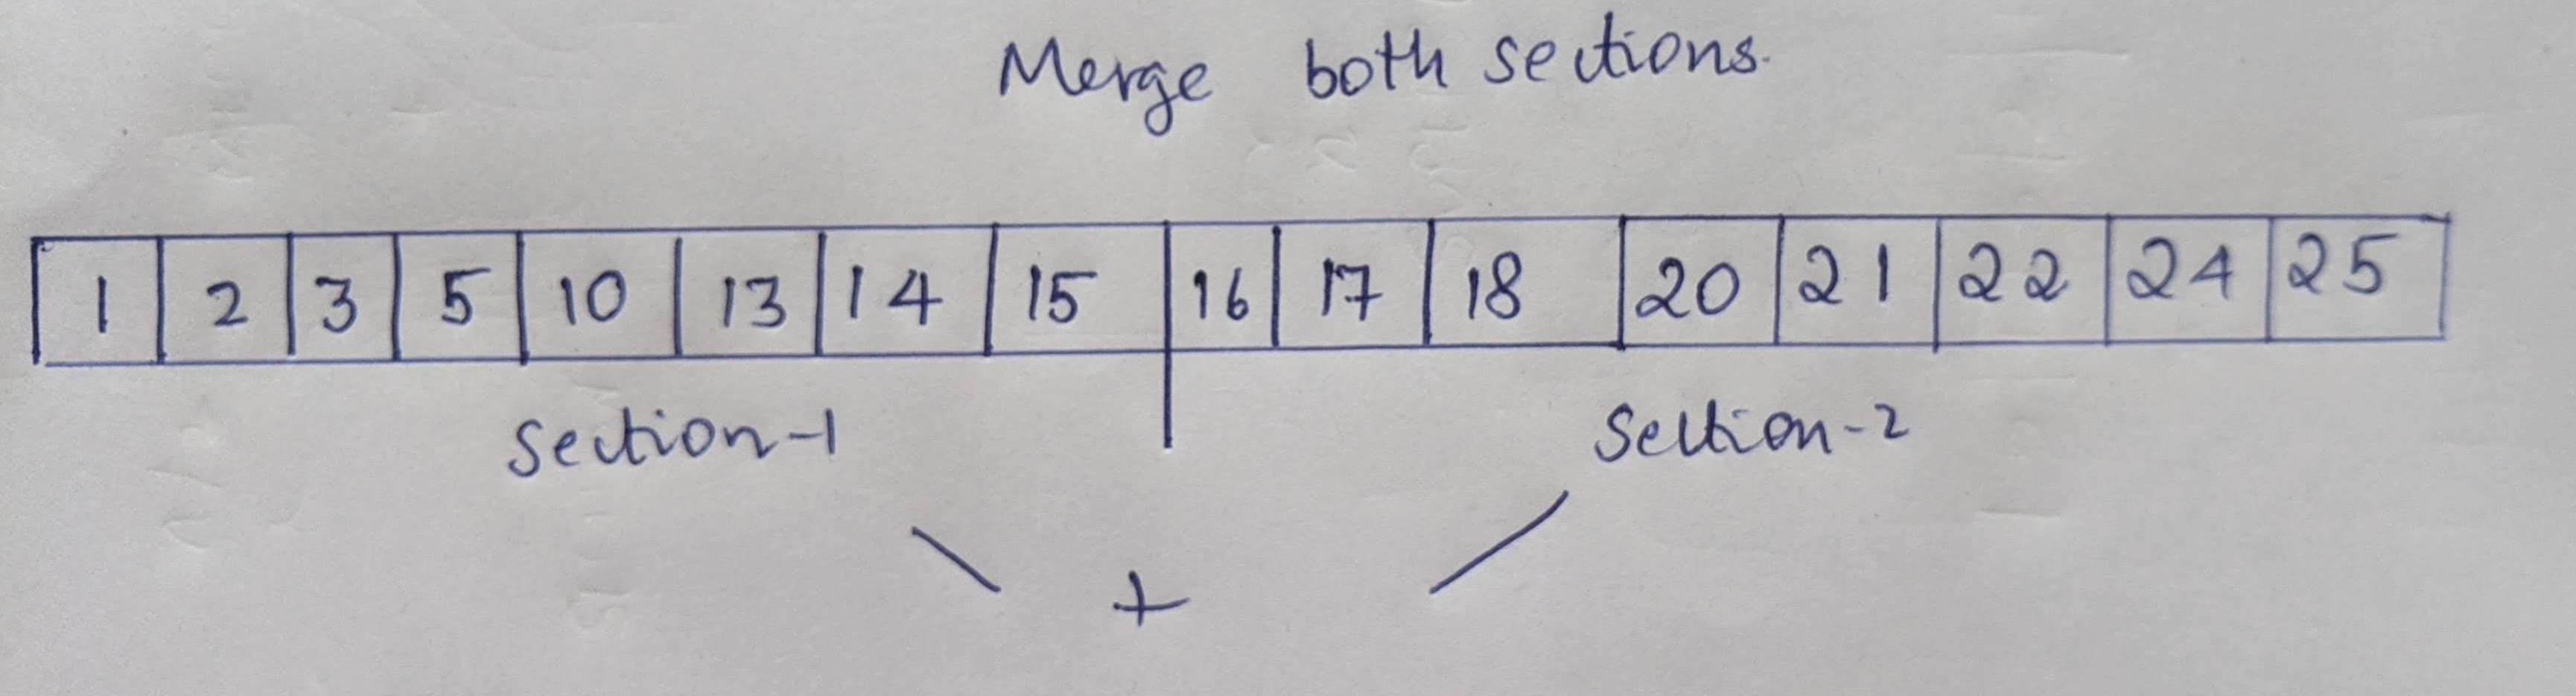 Merge both sections.
1 2 3 5 10 13 14 15 16 17 18 20 21 22 24 25
Section-1 Section-2
+